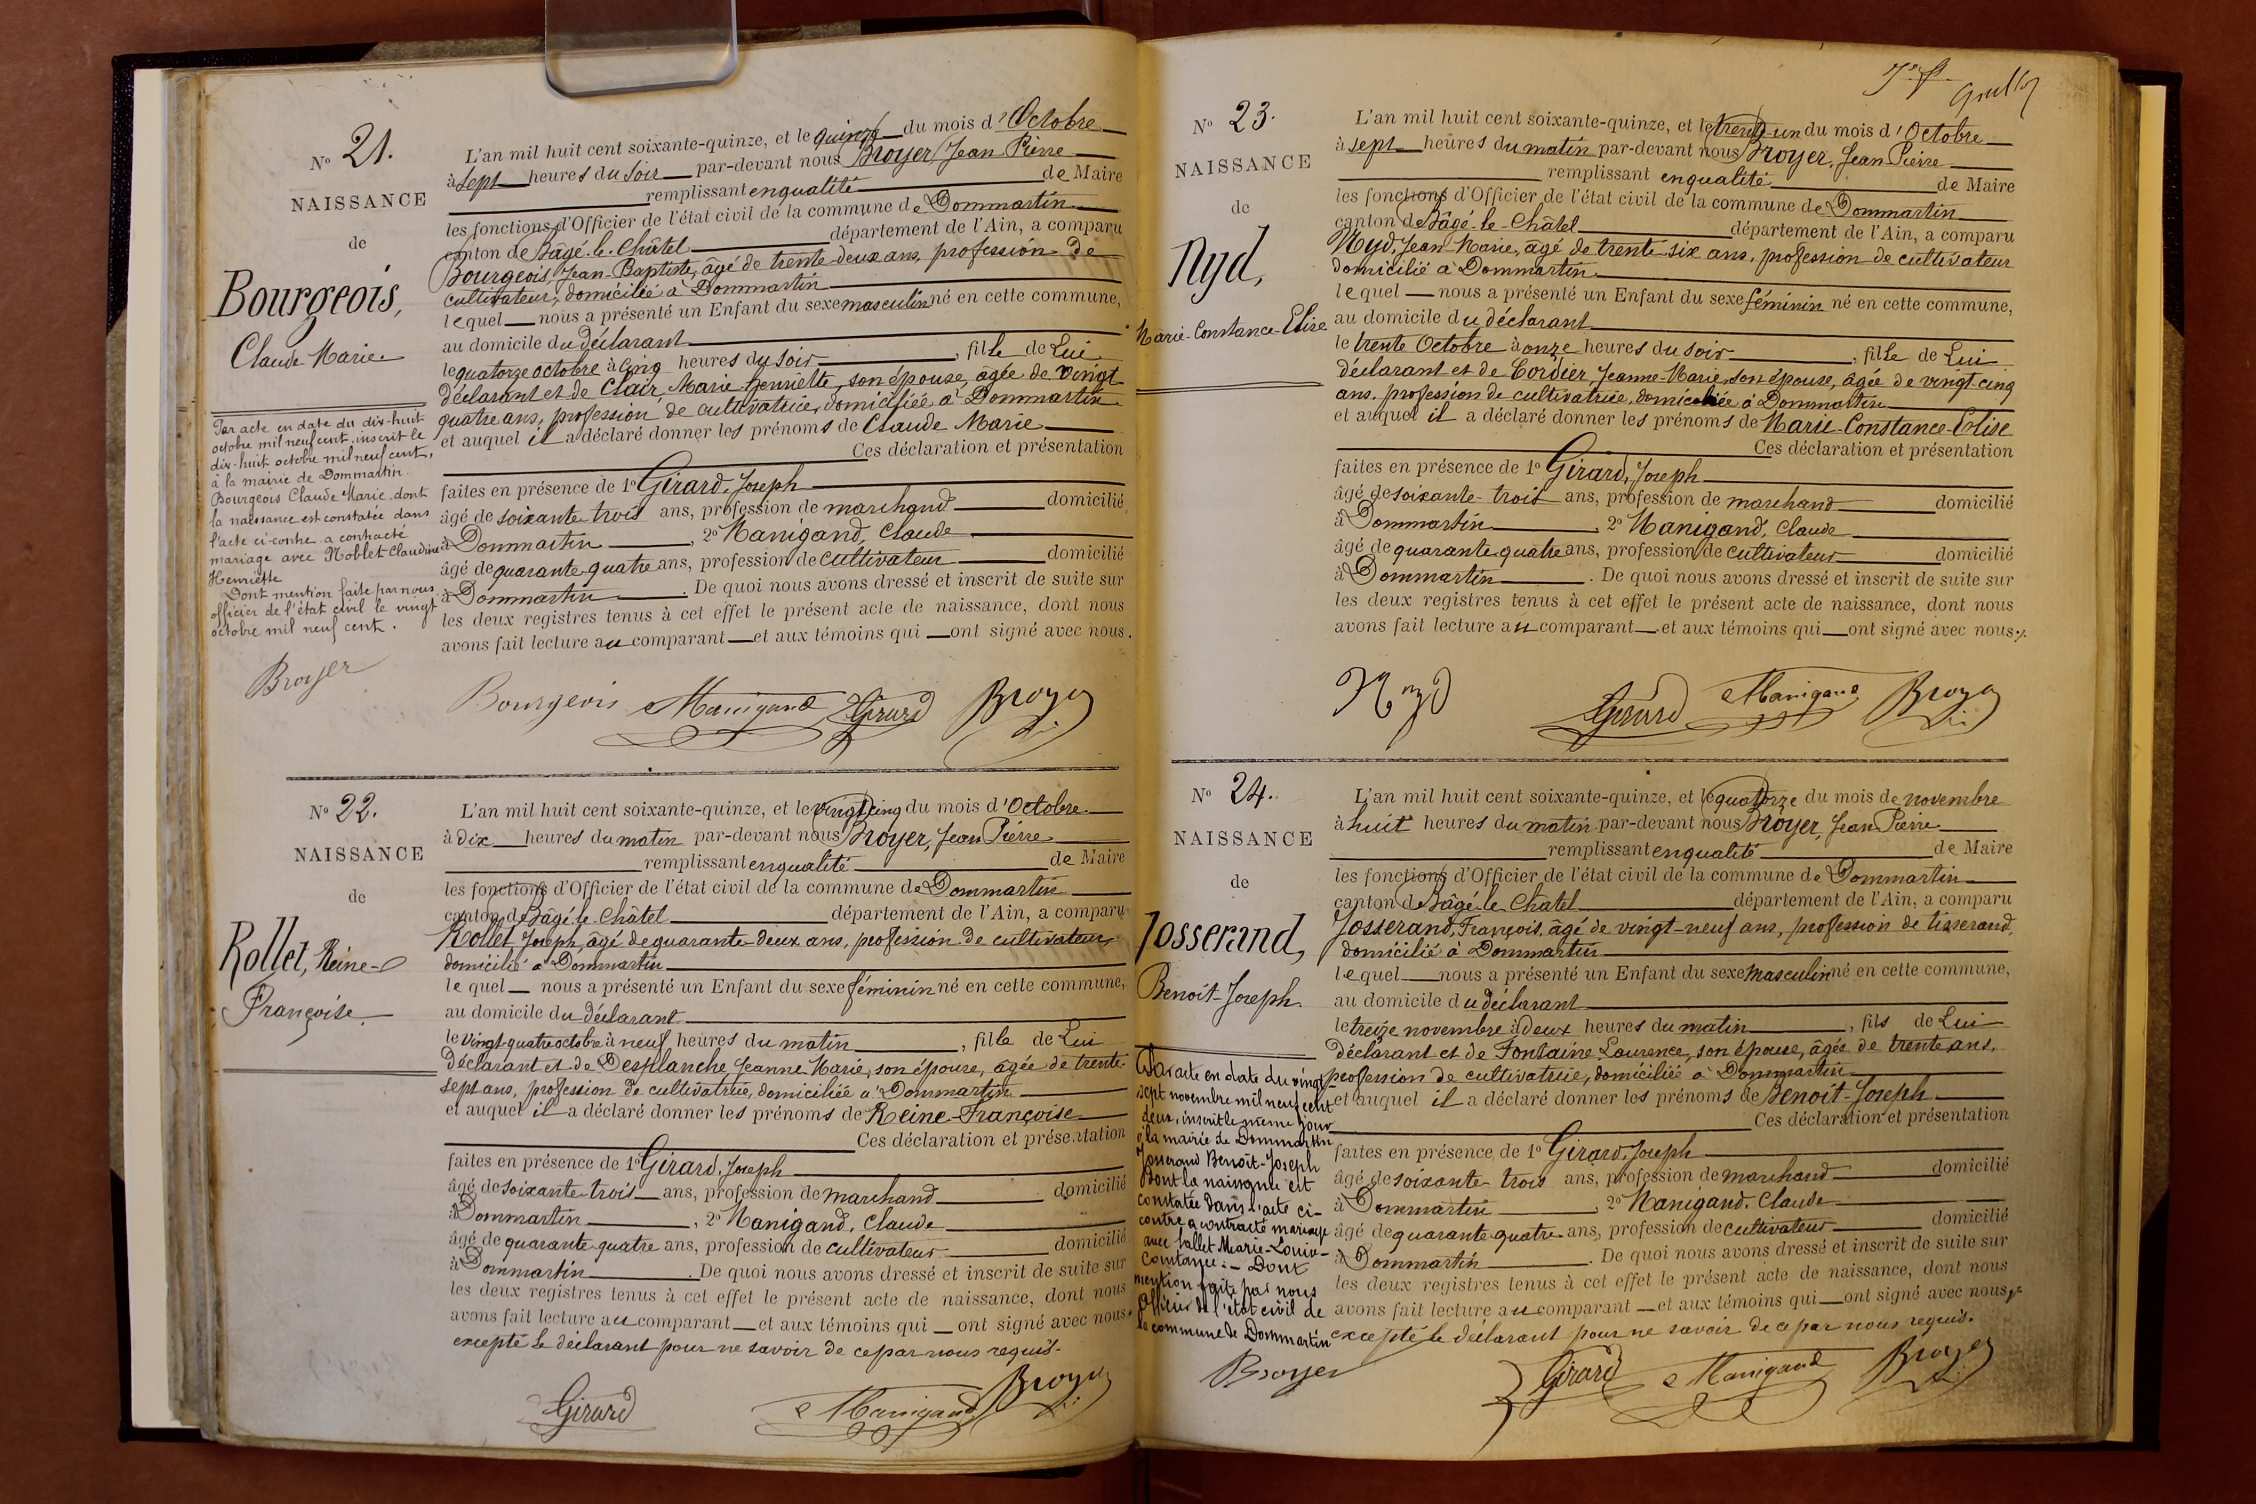 No 21.
NAISSANCE
de
Bourgeois,
Claude Marie
Par acte en date du dix-huit
octobre mil neuf cent, inscrit le
dix-huit octobre mil neuf cent,
à la mairie de Dommartin
Bourgeois Claude Marie dont
la naissance est constatée dans
l'acte ci-contre a contracté
mariage avec Noblet Claudine
Henriette
Dont mention faite par nous
officier de l'état civil le vingt
octobre mil neuf cent.
Broyer
L'an mil huit cent soixante-quinze, et le quinze du mois d'Octobre
à sept heures du soir par-devant nous Broyer, Jean Pierre
remplissant en qualité de Maire
les fonctions d'Officier de l'état civil de la commune de Dommartin
canton de Bâgé-le-Châtel département de l'Ain, a comparu
Bourgeois, Jean-Baptiste, âgé de trente deux ans, profession de
cultivateur, domicilié à Dommartin
lequel nous a présenté un Enfant du sexe masculin né en cette commune,
au domicile du déclarant
le quatorze octobre à cinq heures du soir, fille de Lui
déclarant et de Clair, Marie Henriette, son épouse, âgée de vingt
quatre ans, profession de cultivatrice, domiciliée à Dommartin
et auquel il a déclaré donner les prénoms de Claude Marie
Ces déclaration et présentation
faites en présence de 1º Girard, Joseph
âgé de soixante trois ans, profession de marchand domicilié
à Dommartin, 2º Manigand, Claude
âgé de quarante quatre ans, profession de cultivateur domicilié
à Dommartin. De quoi nous avons dressé et inscrit de suite sur
les deux registres tenus à cet effet le présent acte de naissance, dont nous
avons fait lecture au comparant et aux témoins qui ont signé avec nous.
Bourgeois Manigand Girard Broyer
No 22.
NAISSANCE
de
Rollet, Reine
Françoise
L'an mil huit cent soixante-quinze, et le vingt cinq du mois d'Octobre
à dix heures du matin par-devant nous Broyer, Jean Pierre
remplissant en qualité de Maire
les fonctions d'Officier de l'état civil de la commune de Dommartin
canton de Bâgé-le-Châtel département de l'Ain, a comparu
Rollet, Joseph, âgé de quarante-deux ans, profession de cultivateur
domicilié à Dommartin
le quel nous a présenté un Enfant du sexe féminin né en cette commune,
au domicile du déclarant
le vingt-quatre octobre à neuf heures du matin, fille de Lui
déclarant et de Desplanche, Jeanne Marie, son épouse, âgée de trente
sept ans, profession de cultivatrice, domiciliée à Dommartin
et auquel il a déclaré donner les prénoms de Reine-Françoise
Ces déclaration et présentation
faites en présence de 1º Girard, Joseph
âgé de soixante-trois ans, profession de marchand domicilié
à Dommartin, 2º Manigand, Claude
âgé de quarante quatre ans, profession de cultivateur domicilié
à Dommartin. De quoi nous avons dressé et inscrit de suite sur
les deux registres tenus à cet effet le présent acte de naissance, dont nous
avons fait lecture au comparant et aux témoins qui ont signé avec nous,
excepté le déclarant pour ne savoir de ce par nous requis.
Girard Manigand Broyer
No 23.
NAISSANCE
de
Nyd,
Marie-Constance-Elise
L'an mil huit cent soixante-quinze, et le trente-un du mois d'Octobre
à sept heures du matin par-devant nous Broyer, Jean Pierre
remplissant en qualité de Maire
les fonctions d'Officier de l'état civil de la commune de Dommartin
canton de Bâgé-le-Châtel département de l'Ain, a comparu
Nyd, Jean-Marie, âgé de trente six ans, profession de cultivateur
domicilié à Dommartin
lequel nous a présenté un Enfant du sexe féminin né en cette commune,
au domicile du déclarant
le trente Octobre à onze heures du soir, fille de Lui
déclarant et de Cordier, Jeanne-Marie, son épouse, âgée de vingt cinq
ans, profession de cultivatrice, domiciliée à Dommartin
et auquel il a déclaré donner les prénoms de Marie-Constance-Elise
Ces déclaration et présentation
faites en présence de 1º Girard, Joseph
âgé de soixante-trois ans, profession de marchand domicilié
à Dommartin, 2º Manigand, Claude
âgé de quarante quatre ans, profession de cultivateur domicilié
à Dommartin. De quoi nous avons dressé et inscrit de suite sur
les deux registres tenus à cet effet le présent acte de naissance, dont nous
avons fait lecture au comparant et aux témoins qui ont signé avec nous.
Nyd Girard Manigand Broyer
No 24.
NAISSANCE
de
Josserand,
Benoît-Joseph
Par acte en date du vingt-
sept novembre mil neuf cent
deux, inscrit le même jour
à la mairie de Dommartin
Josserand Benoît-Joseph
dont la naissance est
constatée dans l'acte ci-
contre a contracté mariage
avec Marie-Louise-
Constance. Dont
mention faite par nous
Officier de l'état civil de
la commune de Dommartin
Broyer
L'an mil huit cent soixante-quinze, et le quatorze du mois de novembre
à huit heures du matin par-devant nous Broyer, Jean Pierre
remplissant en qualité de Maire
les fonctions d'Officier de l'état civil de la commune de Dommartin
canton de Bâgé-le-Châtel département de l'Ain, a comparu
Josserand, François, âgé de vingt-neuf ans, profession de tisserand,
domicilié à Dommartin
lequel nous a présenté un Enfant du sexe masculin né en cette commune,
au domicile du déclarant
le treize novembre à deux heures du matin, fils de Lui
déclarant et de Fontaine Laurence, son épouse, âgée de trente ans,
profession de cultivatrice, domiciliée à Dommartin
et auquel il a déclaré donner les prénoms de Benoît-Joseph
Ces déclaration et présentation
faites en présence de 1º Girard, Joseph
âgé de soixante-trois ans, profession de marchand domicilié
à Dommartin, 2º Manigand, Claude
âgé de quarante quatre ans, profession de cultivateur domicilié
à Dommartin. De quoi nous avons dressé et inscrit de suite sur
les deux registres tenus à cet effet le présent acte de naissance, dont nous
avons fait lecture au comparant et aux témoins qui ont signé avec nous,
excepté le déclarant pour ne savoir de ce par nous requis.
Girard Manigand Broyer